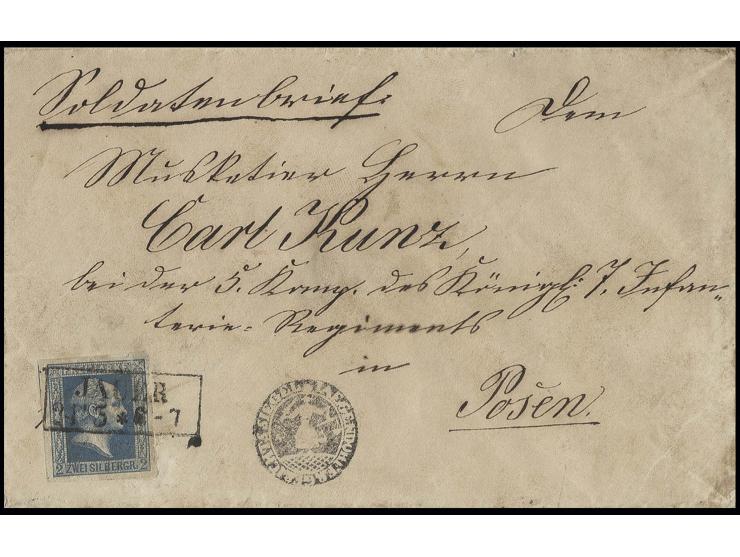 Soldatenbrief.
Dem
Musketier Herrn
Carl Kunz,
bei der 5. Komp. des Königl. 7. Infan-
terie-Regiments
in
Posen.
JAUER
5 * 6-7
2 ZWEI SILBERGR. 2